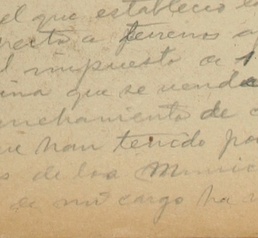 el que estableció l
a terrenos a
el impuesto a
que se vend
enchamiento de
han tenido po
s de los Munic
a mi cargo ha